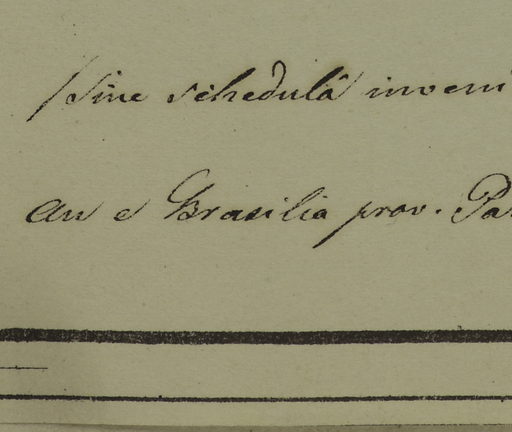 Sine schedulâ inveni
An e Brasilia prov. Par